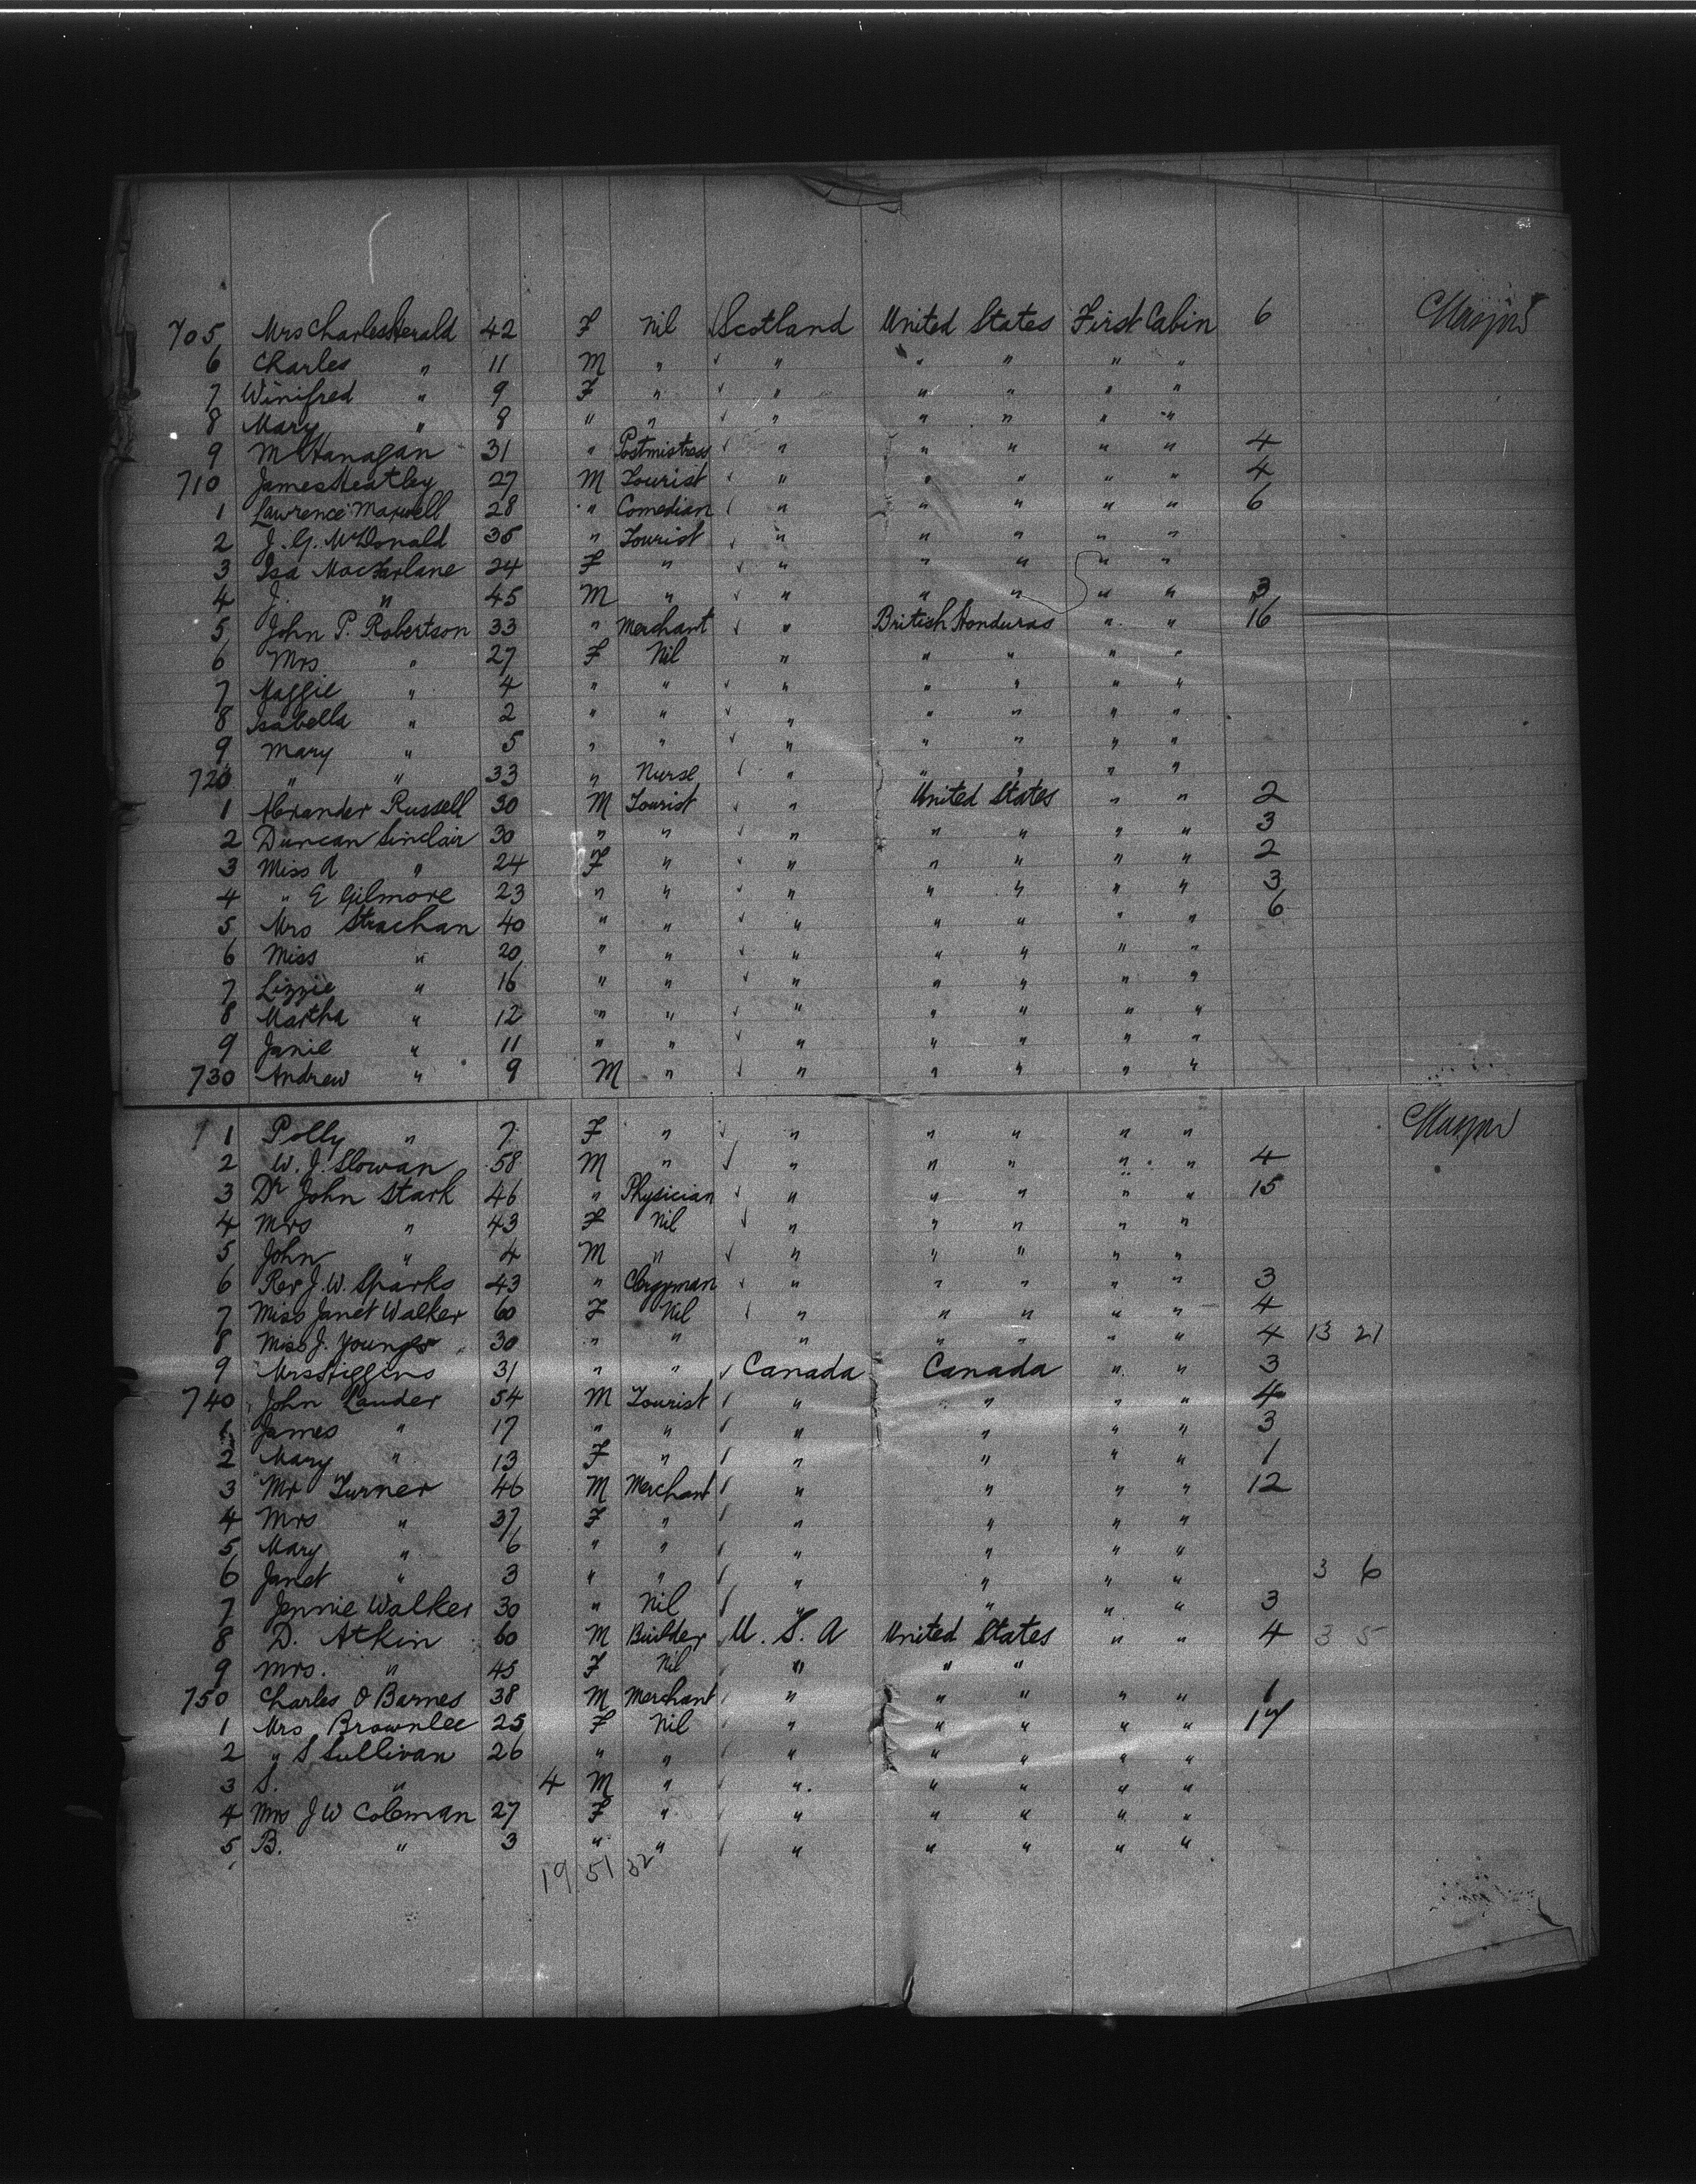 705 Mrs Charles Herald 42 F Nil Scotland United States First Cabin 6
6 Charles " 11 M " " " " " "
7 Winifred " 9 F " " " " " "
8 Mary " 8 " " " " " " "
9 M Hanagan 31 " Postmistress " " " " " 4
710 James Heatley 27 M Tourist " " " " " 4
1 Lawrence Maxwell 28 " Comedian " " " " " 6
2 J. G. McDonald 35 " Tourist " " " " "
3 Isa MacFarlane 24 F " " " " " "
4 J. " 45 M " " " " " " 3
5 John P. Robertson 33 " Merchant " British Honduras " " 16
6 Mrs " 27 F Nil " " " " "
7 Maggie " 4 " " " " " " "
8 Isabella " 2 " " " " " " "
9 Mary " 5 " " " " " " "
720 " " 33 " Nurse " " " " "
1 Alexander Russell 30 M Tourist " United States " " 2
2 Duncan Sinclair 30 " " " " " " " 3
3 Miss A " 24 F " " " " " " 2
4 " E Gilmore 23 " " " " " " " 3
5 Mrs Strachan 40 " " " " " " " 6
6 Miss " 20 " " " " " " "
7 Lizzie " 16 " " " " " " "
8 Martha " 12 " " " " " " "
9 Janie " 11 " " " " " " "
730 Andrew " 9 M " " " " " "
1 Polly " 7 F " " " " " "
2 W. J. Slowan 58 M " " " " " " 4
3 Dr John Stark 46 " Physician " " " " " 15
4 Mrs " 43 F Nil " " " " "
5 John " 4 M " " " " " "
6 Rev J. W. Sparks 43 " Clergyman " " " " " 3
7 Miss Janet Walker 60 F Nil " " " " " 4
8 Miss J. Younger 30 " " " " " " " 4 13 21
9 Mrs Higgins 31 " " Canada Canada " " 3
740 John Lauder 54 M Tourist " " " " 4
1 James " 17 " " " " " " 3
2 Mary " 13 F " " " " " 1
3 Mr Turner 46 M Merchant " " " " 12
4 Mrs " 37 F " " " " "
5 Mary " 6 " " " " " "
6 Janet " 3 " " " " " " 3 6
7 Jennie Walker 30 " Nil " " " " 3
8 D. Atkin 60 M Builder U. S. A United States " " 4 3 5
9 Mrs. " 45 F Nil " " "
750 Charles O Barnes 38 M Merchant " " " " " 1
1 Mrs Brownlee 25 F Nil " " " " " 17
2 " S Sullivan 26 " " " " " " "
3 S. " 4 M " " " " " "
4 Mrs J W Coleman 27 F " " " " " "
5 B. " 3 " " " " " " "
19 51 32